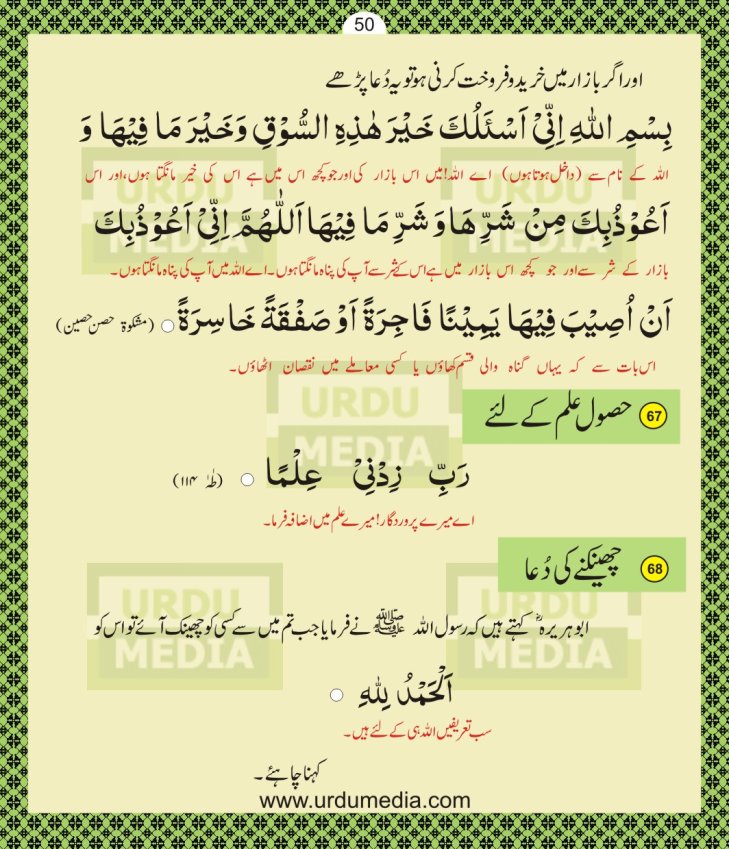 50
اور اگر بازار میں خرید و فروخت کرنی ہو تو یہ دُعا پڑھے
بِسْمِ اللهِ اِنِّىْ اَسْئَلُكَ خَيْرَ هٰذِهِ السُّوْقِ وَخَيْرَ مَا فِيْهَا وَ
اللہ کے نام سے (داخل ہوتا ہوں) اے اللہ! میں اس بازار کی اور جو کچھ اس میں ہے اس کی خیر مانگتا ہوں، اور اس
اَعُوْذُبِكَ مِنْ شَرِّهَا وَ شَرِّ مَا فِيْهَا اَللّٰهُمَّ اِنِّىْ اَعُوْذُبِكَ
بازار کے شر سے اور جو کچھ اس بازار میں ہے اس کے شر سے آپ کی پناہ مانگتا ہوں۔ اے اللہ میں آپ کی پناہ مانگتا ہوں۔
اَنْ اُصِيْبَ فِيْهَا يَمِيْنًا فَاجِرَةً اَوْ صَفْقَةً خَاسِرَةً (مشکوۃ حصن حصین)
اس بات سے کہ یہاں گناہ والی قسم کھاؤں یا کسی معاملے میں نقصان اٹھاؤں۔
67 حصول علم کے لئے
رَبِّ زِدْنِىْ عِلْمًا (طٰہٰ ۱۱۴)
اے میرے پروردگار! میرے علم میں اضافہ فرما۔
68 چھینکنے کی دُعا
ابو ہریرہؓ کہتے ہیں کہ رسول اللہ ﷺ نے فرمایا جب تم میں سے کسی کو چھینک آئے تو اس کو
اَلْحَمْدُ لِلّٰهِ
سب تعریفیں اللہ ہی کے لئے ہیں۔
کہنا چاہئے۔
www.urdumedia.com
URDU MEDIA
URDU MEDIA
URDU MEDIA
URDU MEDIA
URDU MEDIA